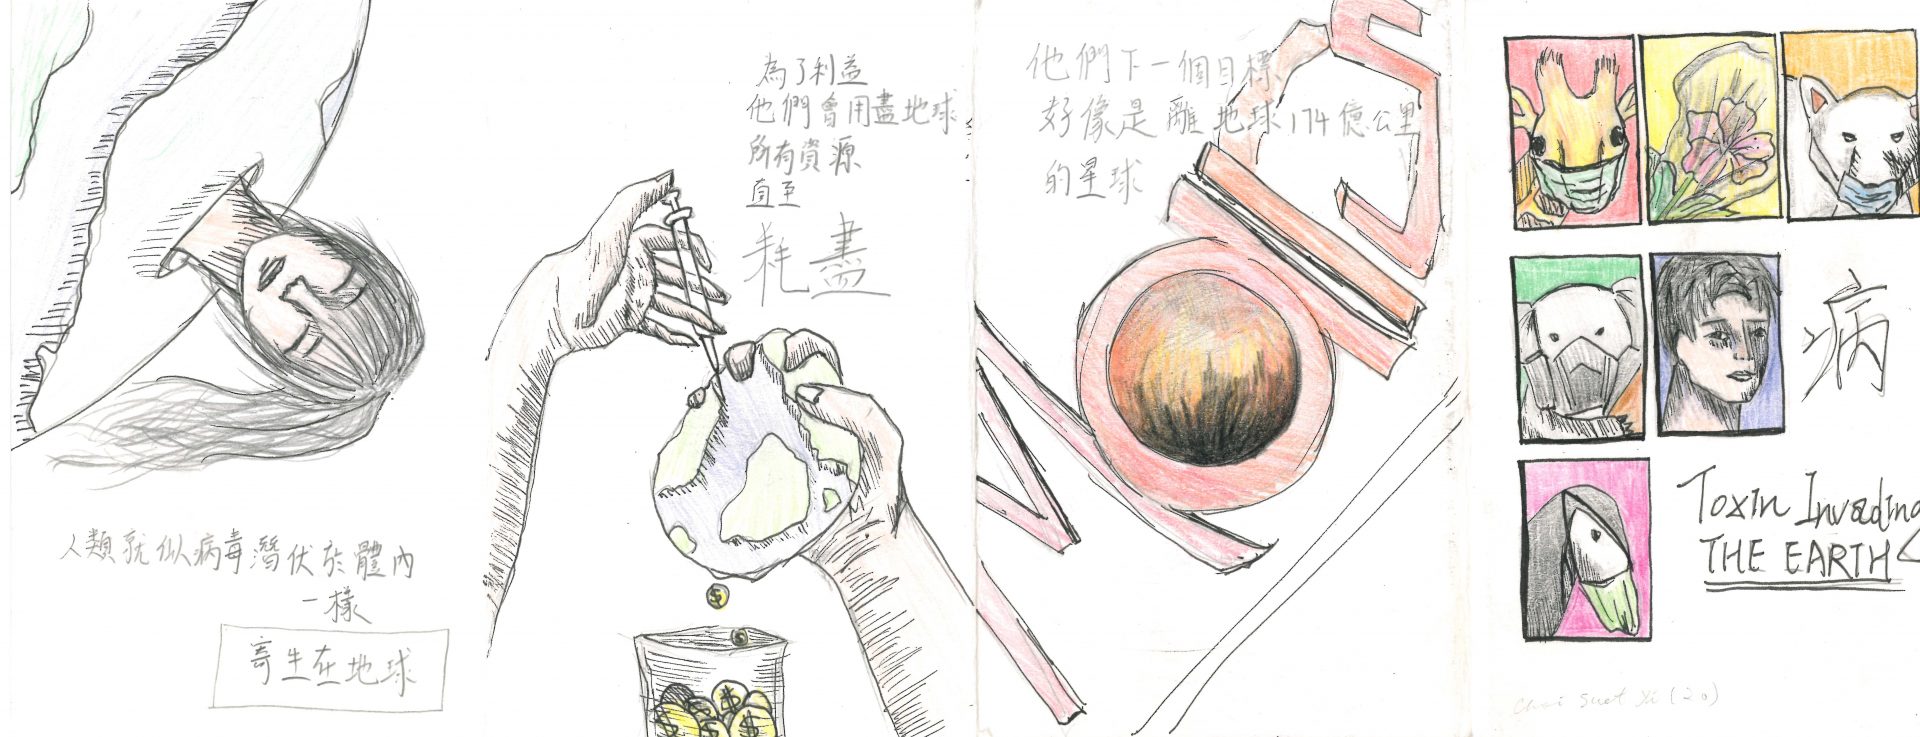 人類就似病毒潛伏於體內
一樣
寄生在地球
為了利益
他們會用盡地球
所有資源
直至
耗盡
$
$
$
$
$
$
他們下一個目標
好像是離地球174億公里
的星球
病
Toxin Invading
THE EARTH
Choi Suet Yi (20)